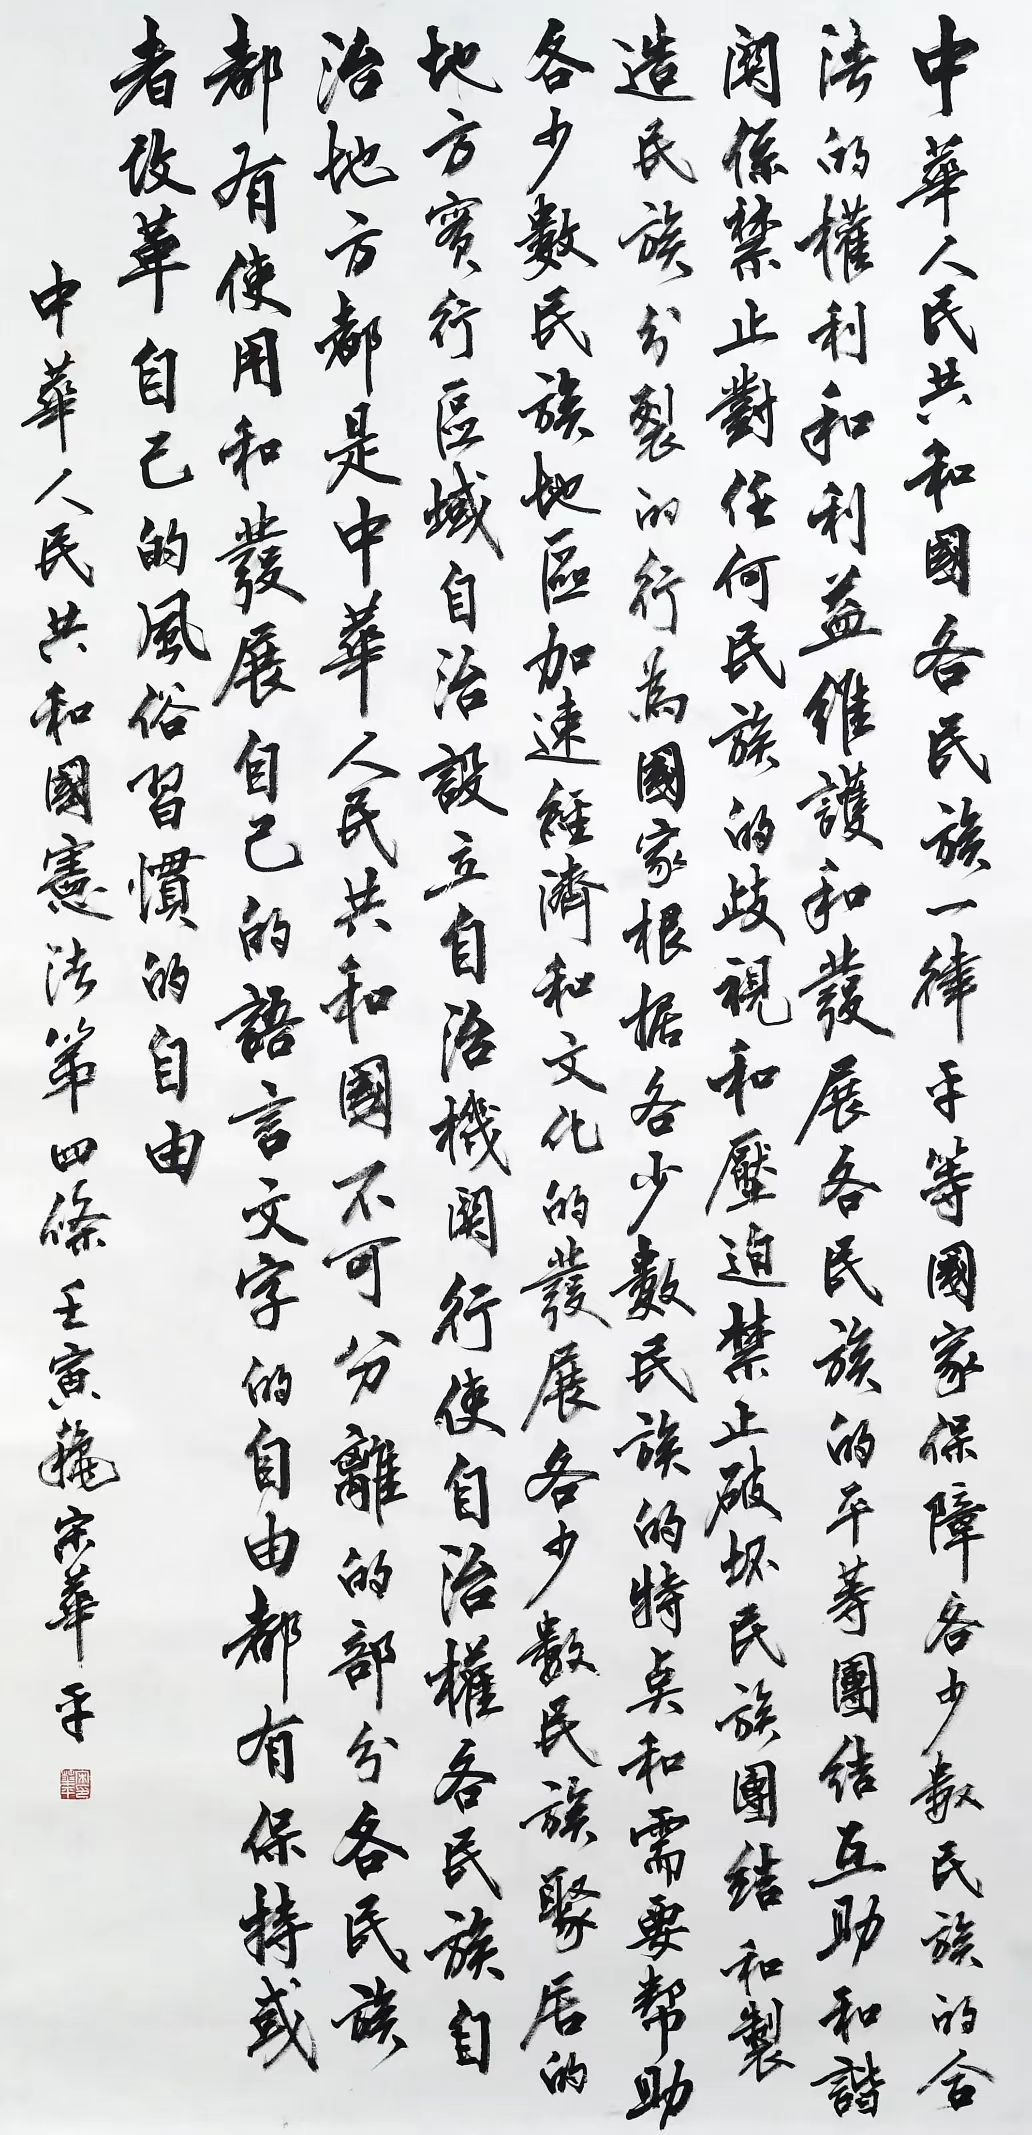 中華人民共和國各民族一律平等國家保障各少數民族的合
法的權利和利益維護和發展各民族的平等團結互助和諧
関係禁止對任何民族的歧視和壓迫禁止破坏民族團結和製
造民族分裂的行為國家根据各少數民族的特点和需要幫助
各少數民族地區加速經濟和文化的發展各少數民族聚居的
地方實行區域自治設立自治機関行使自治權各民族自
治地方都是中華人民共和國不可分離的部分各民族
都有使用和發展自己的語言文字的自由都有保持或
者改革自己的風俗習慣的自由
中華人民共和國憲法第四條壬寅龝宗華平